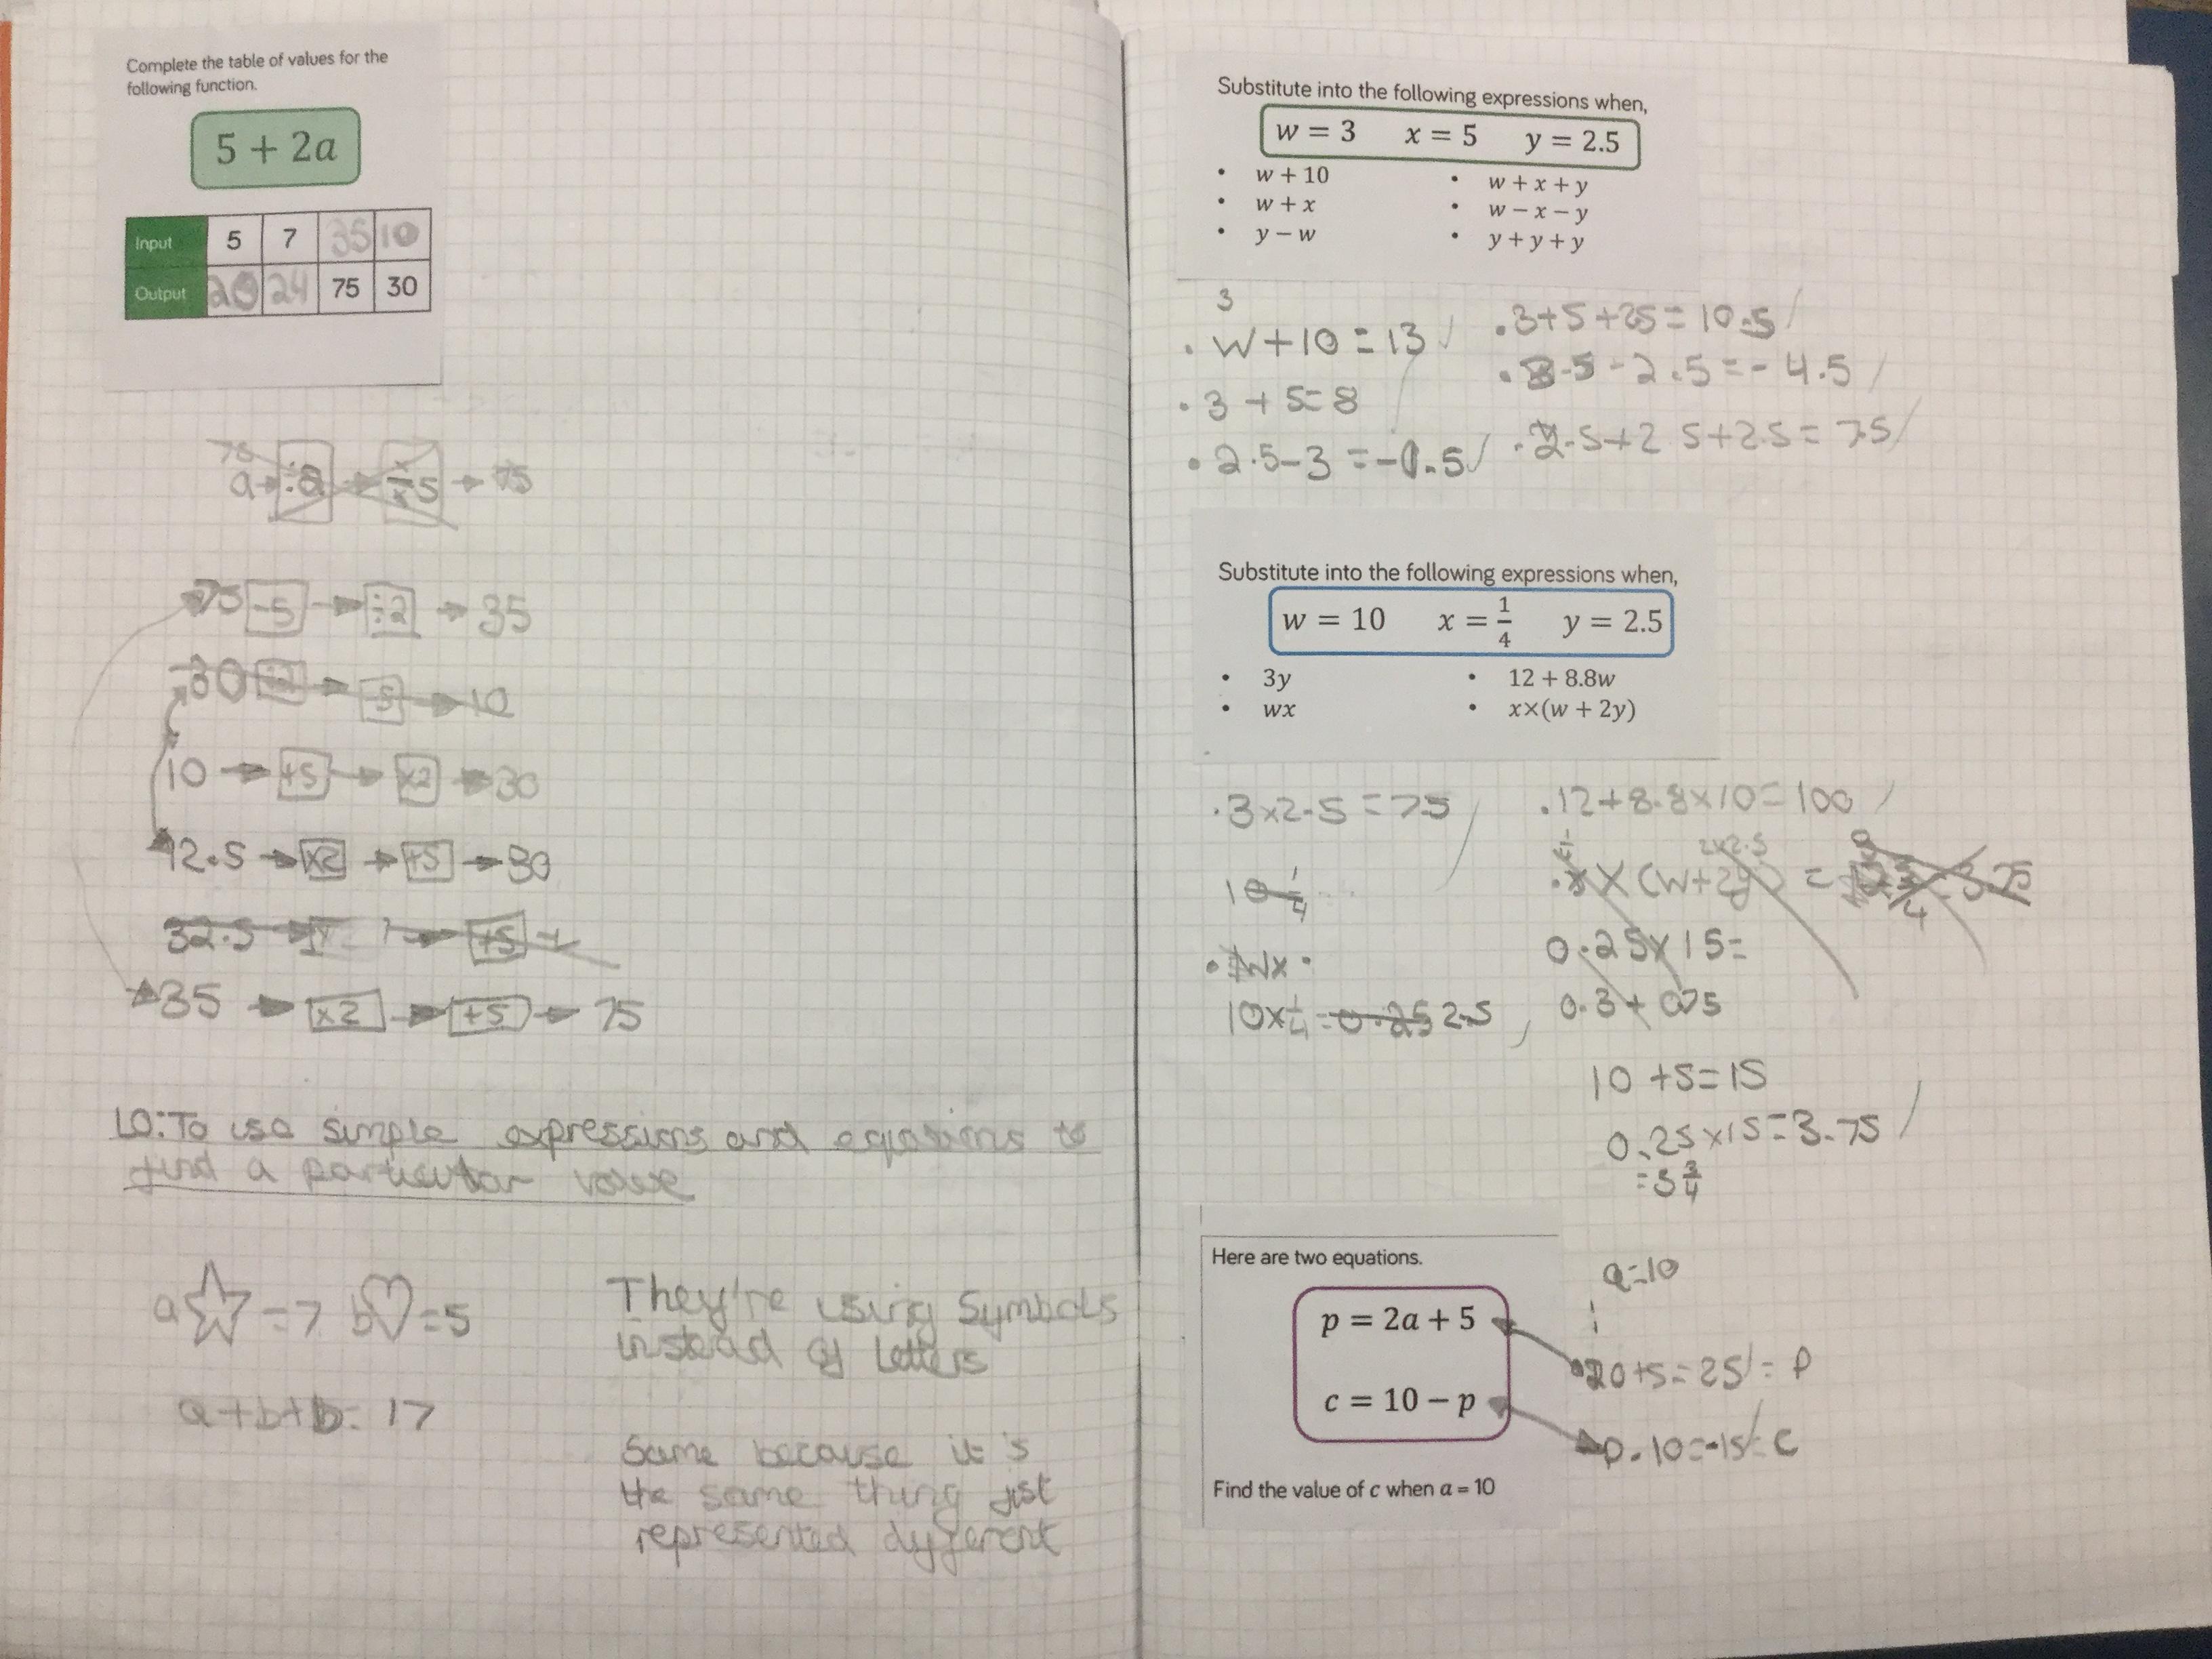 Complete the table of values for the
following function.
5 + 2a
Input 5 7 35 10
Output 20 24 75 30
75
a → ÷2 → 5 → 75
75 -5 → ÷2 → 35
30 ÷2 → -5 → 10
10 → +5 → x2 → 30
12.5 → x2 → +5 → 30
32.5 → → +5
35 → x2 → +5 → 75
LO: To use simple expressions and equations to
find a particular value
a ☆ = 7 b ♡ = 5
a+b+b = 17
They're using Symbols
instead of Letters
Same because it's
the same thing just
represented different
Substitute into the following expressions when,
w = 3 x = 5 y = 2.5
• w + 10
• w + x
• y − w
• w + x + y
• w − x − y
• y + y + y
3
. w+10=13
. 3 + 5=8
. 2.5-3 =-0.5
. 3+5+2.5= 10.5
. 3-5-2.5=-4.5
. 2.5+2.5+2.5= 7.5
Substitute into the following expressions when,
w = 10 x = 1/4 y = 2.5
• 3y
• wx
• 12 + 8.8w
• x×(w + 2y)
. 3x2.5=7.5
10 1/4
. wx .
10x 1/4 = 0.25 2.5
. 12+8.8x10=100
1/4 2x2.5
. x X (w+2y) = 3.75
0.25x15=
0.3+0.75
10+5=15
0.25x15=3.75
=3 3/4
Here are two equations.
p = 2a + 5
c = 10 − p
Find the value of c when a = 10
a=10
20+5=25=P
p-10=-15=C